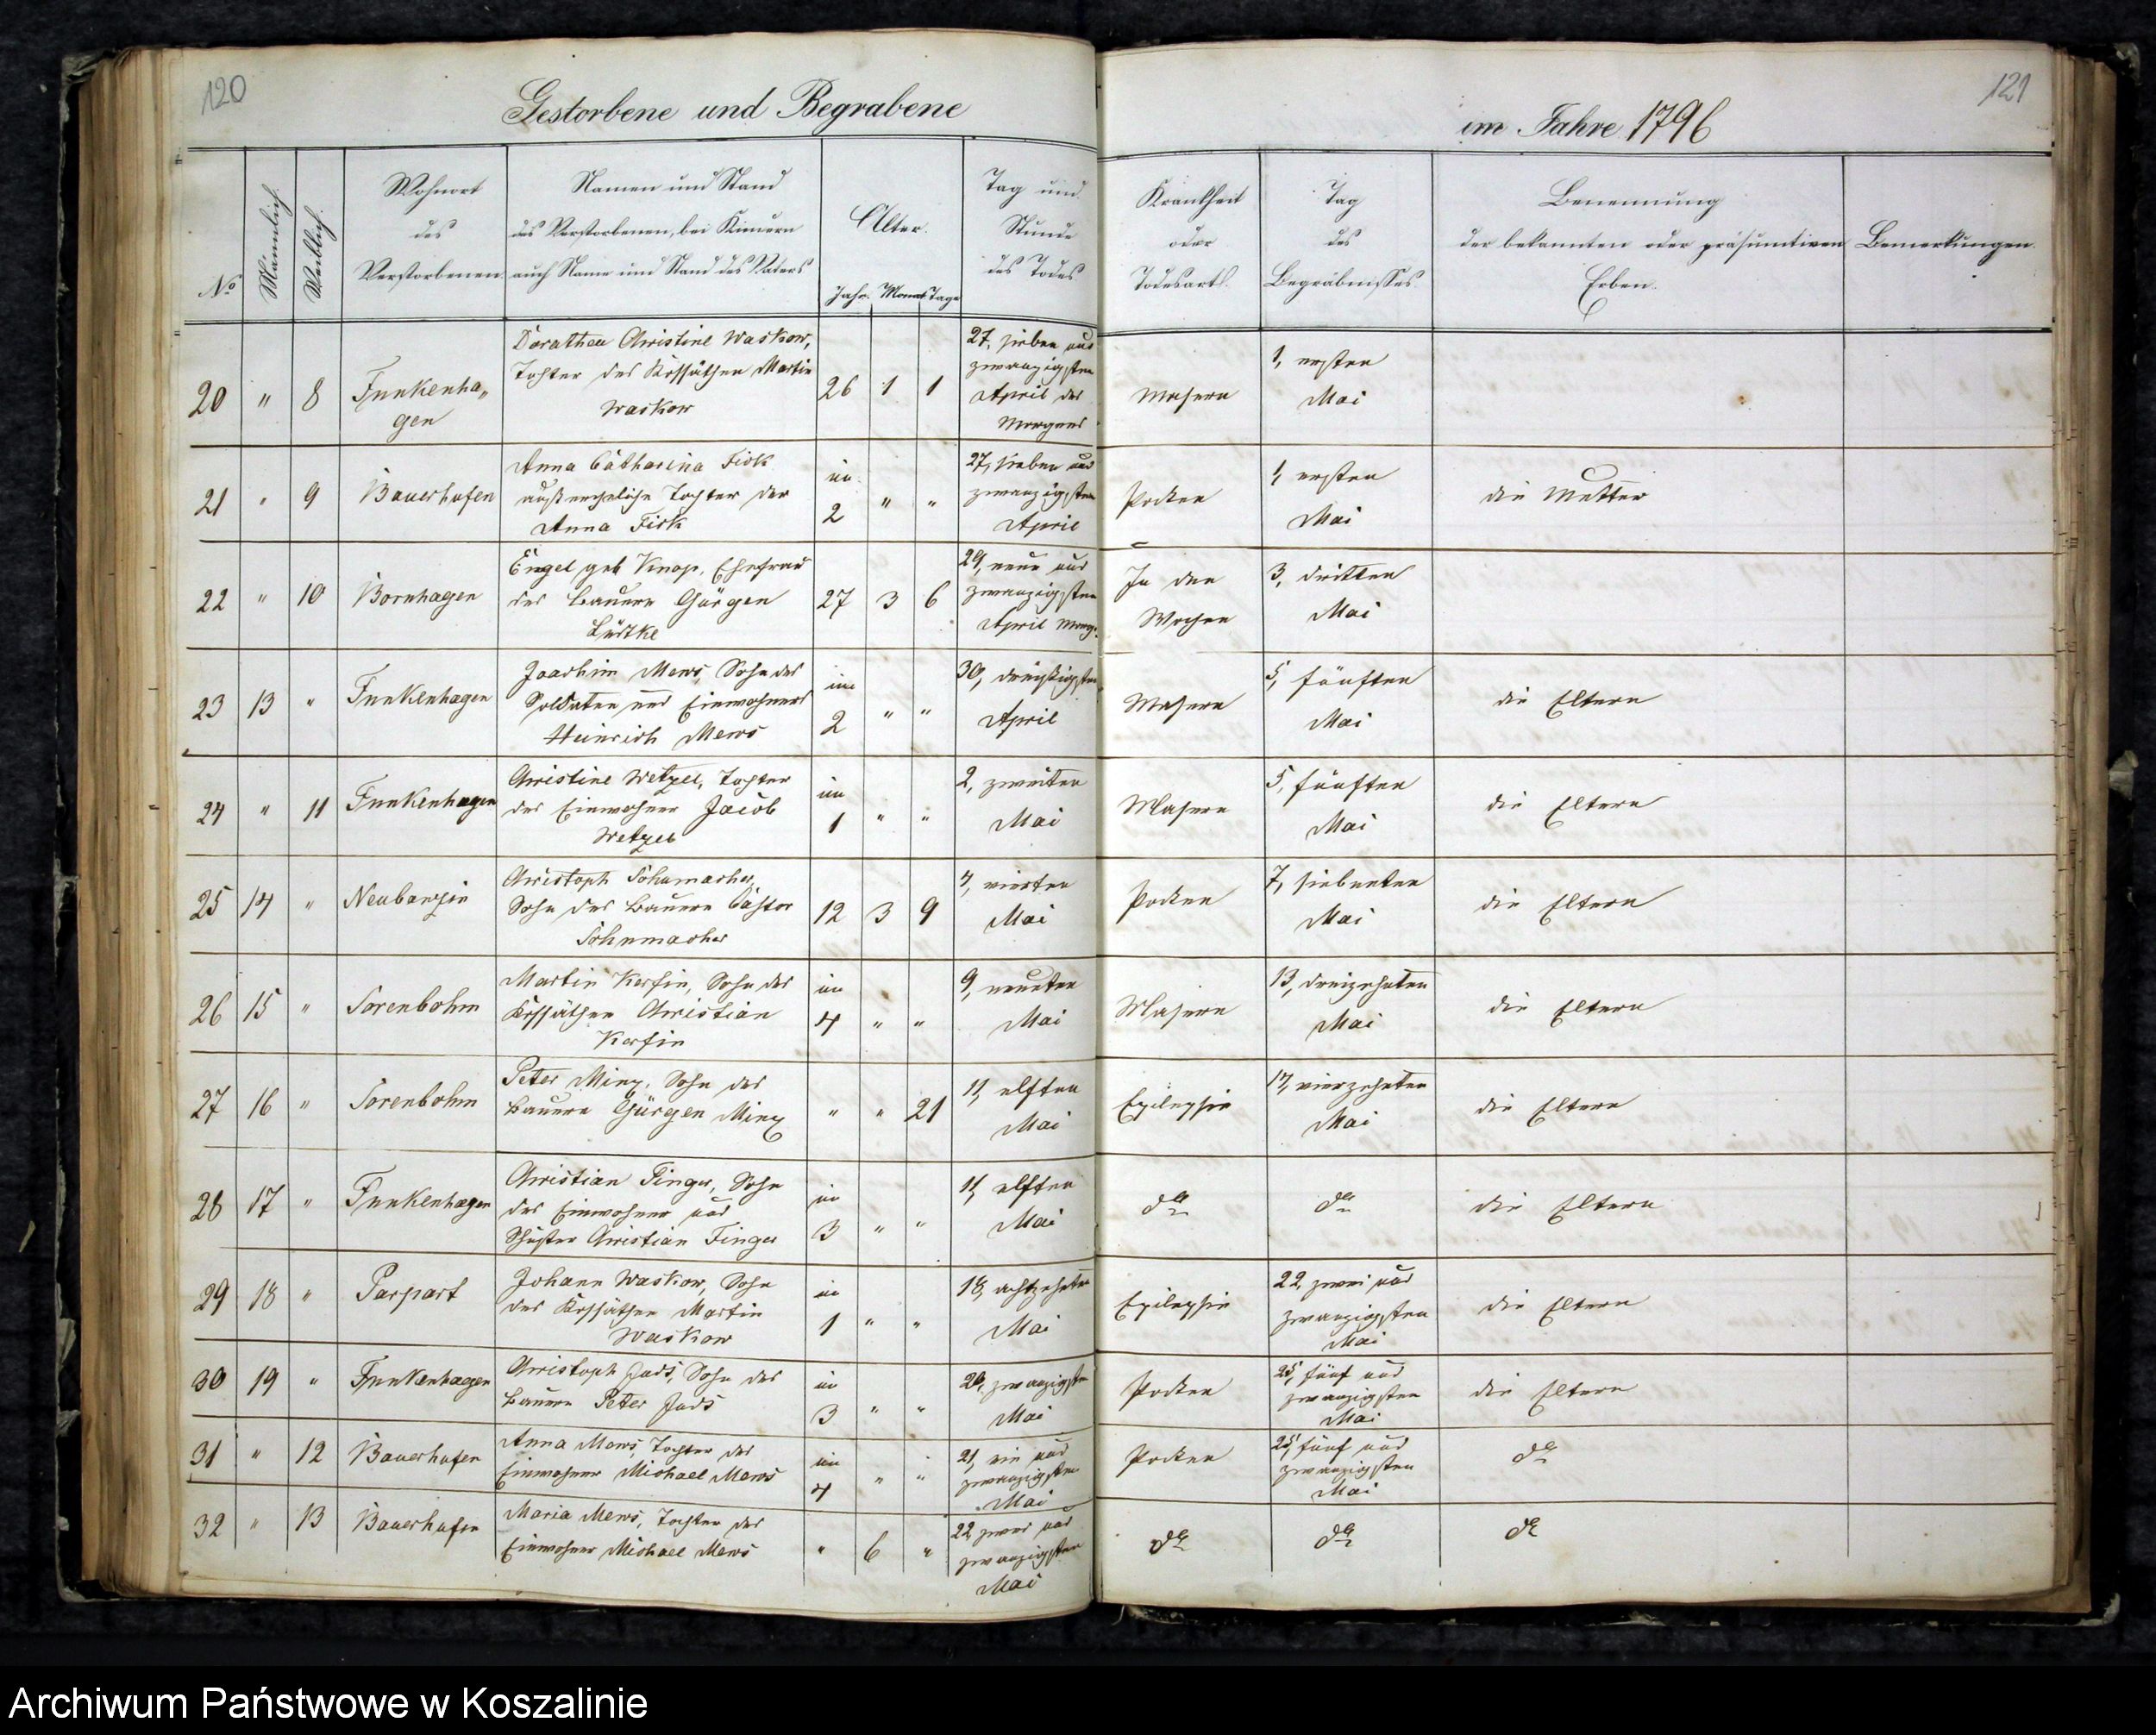 120
Gestorbene und Begrabene
No
Männlich.
Weiblich.
Wohnort
des
Verstorbenen.
Namen und Stand
des Verstorbenen, bei Kindern
auch Name und Stand des Vaters
Alter.
Jahr. Monat Tage
Tag und
Stunde
des Todes
20 " 8 Funkenha„
gen
Dorathea Christine Waskow,
Tochter des Kossäthen Martin
Waskow
26 1 1
27, sieben und
zwanzigsten
April des
Morgens
21 " 9 Bauerhufen
Anna Catharina Fick
außereheliche Tochter der
Anna Fick
im
2 " "
27, sieben und
zwanzigsten
April
22 " 10 Bornhagen
Engel geb Knop, Ehefrau
des Bauern Görgen
Lüdtke
27 3 6
29, neun und
zwanzigsten
April Morg:
23 13 " Funkenhagen
Joachim Mews, Sohn des
Soldaten und Einwohners
Heinrich Mews
im
2 " "
30, dreißigsten
April
24 " 11 Funkenhagen
Christine Wetzel, Tochter
des Einwohner Jacob
Wetzel
im
1 " "
2, zweiten
Mai
25 14 " Neubanzin
Christoph Schumacher,
Sohn des Bauern Castor
Schumacher
12 3 9
4, vierten
Mai
26 15 " Sorenbohm
Martin Kersin, Sohn des
Kossäthen Christian
Kersin
im
4 " "
9, neunten
Mai
27 16 " Sorenbohm
Peter Minx, Sohn des
Bauern Gürgen Minx
" " 21
11, elften
Mai
28 17 " Funkenhagen
Christian Finger, Sohn
des Einwohner und
Schuster Christian Finger
im
3 " "
11, elften
Mai
29 18 " Parpart
Johann Waskow, Sohn
des Kossäthen Martin
Waskow
im
1 " "
18, achtzehnten
Mai
30 19 " Funkenhagen
Christoph Jads, Sohn des
Bauern Peter Jads
im
3 " "
20, zwanzigsten
Mai
31 " 12 Bauerhufen
Anna Mews, Tochter des
Einwohner Michael Mews
im
4 " "
21, ein und
zwanzigsten
Mai
32 " 13 Bauerhufen
Maria Mews, Tochter des
Einwohner Michael Mews
" 6 "
22, zwei und
zwanzigsten
Mai
121
im Jahre 1796
Krankheit
oder
Todesart.
Tag
des
Begräbnisses.
Benennung
der bekannten oder präsumtiven
Erben.
Bemerkungen.
Masern
1, ersten
Mai
Pocken
1, ersten
Mai
die Mutter
In den
Wochen
3, dritten
Mai
Masern
5, fünften
Mai
die Eltern
Masern
5, fünften
Mai
die Eltern
Pocken
7, siebenten
Mai
die Eltern
Masern
13, dreizehnten
Mai
die Eltern
Epilepsie
14, vierzehnten
Mai
die Eltern
do
do
die Eltern
Epilepsie
22, zwei und
zwanzigsten
Mai
die Eltern
Pocken
25, fünf und
zwanzigsten
Mai
die Eltern
Pocken
25, fünf und
zwanzigsten
Mai
do
do
do
do
Archiwum Państwowe w Koszalinie